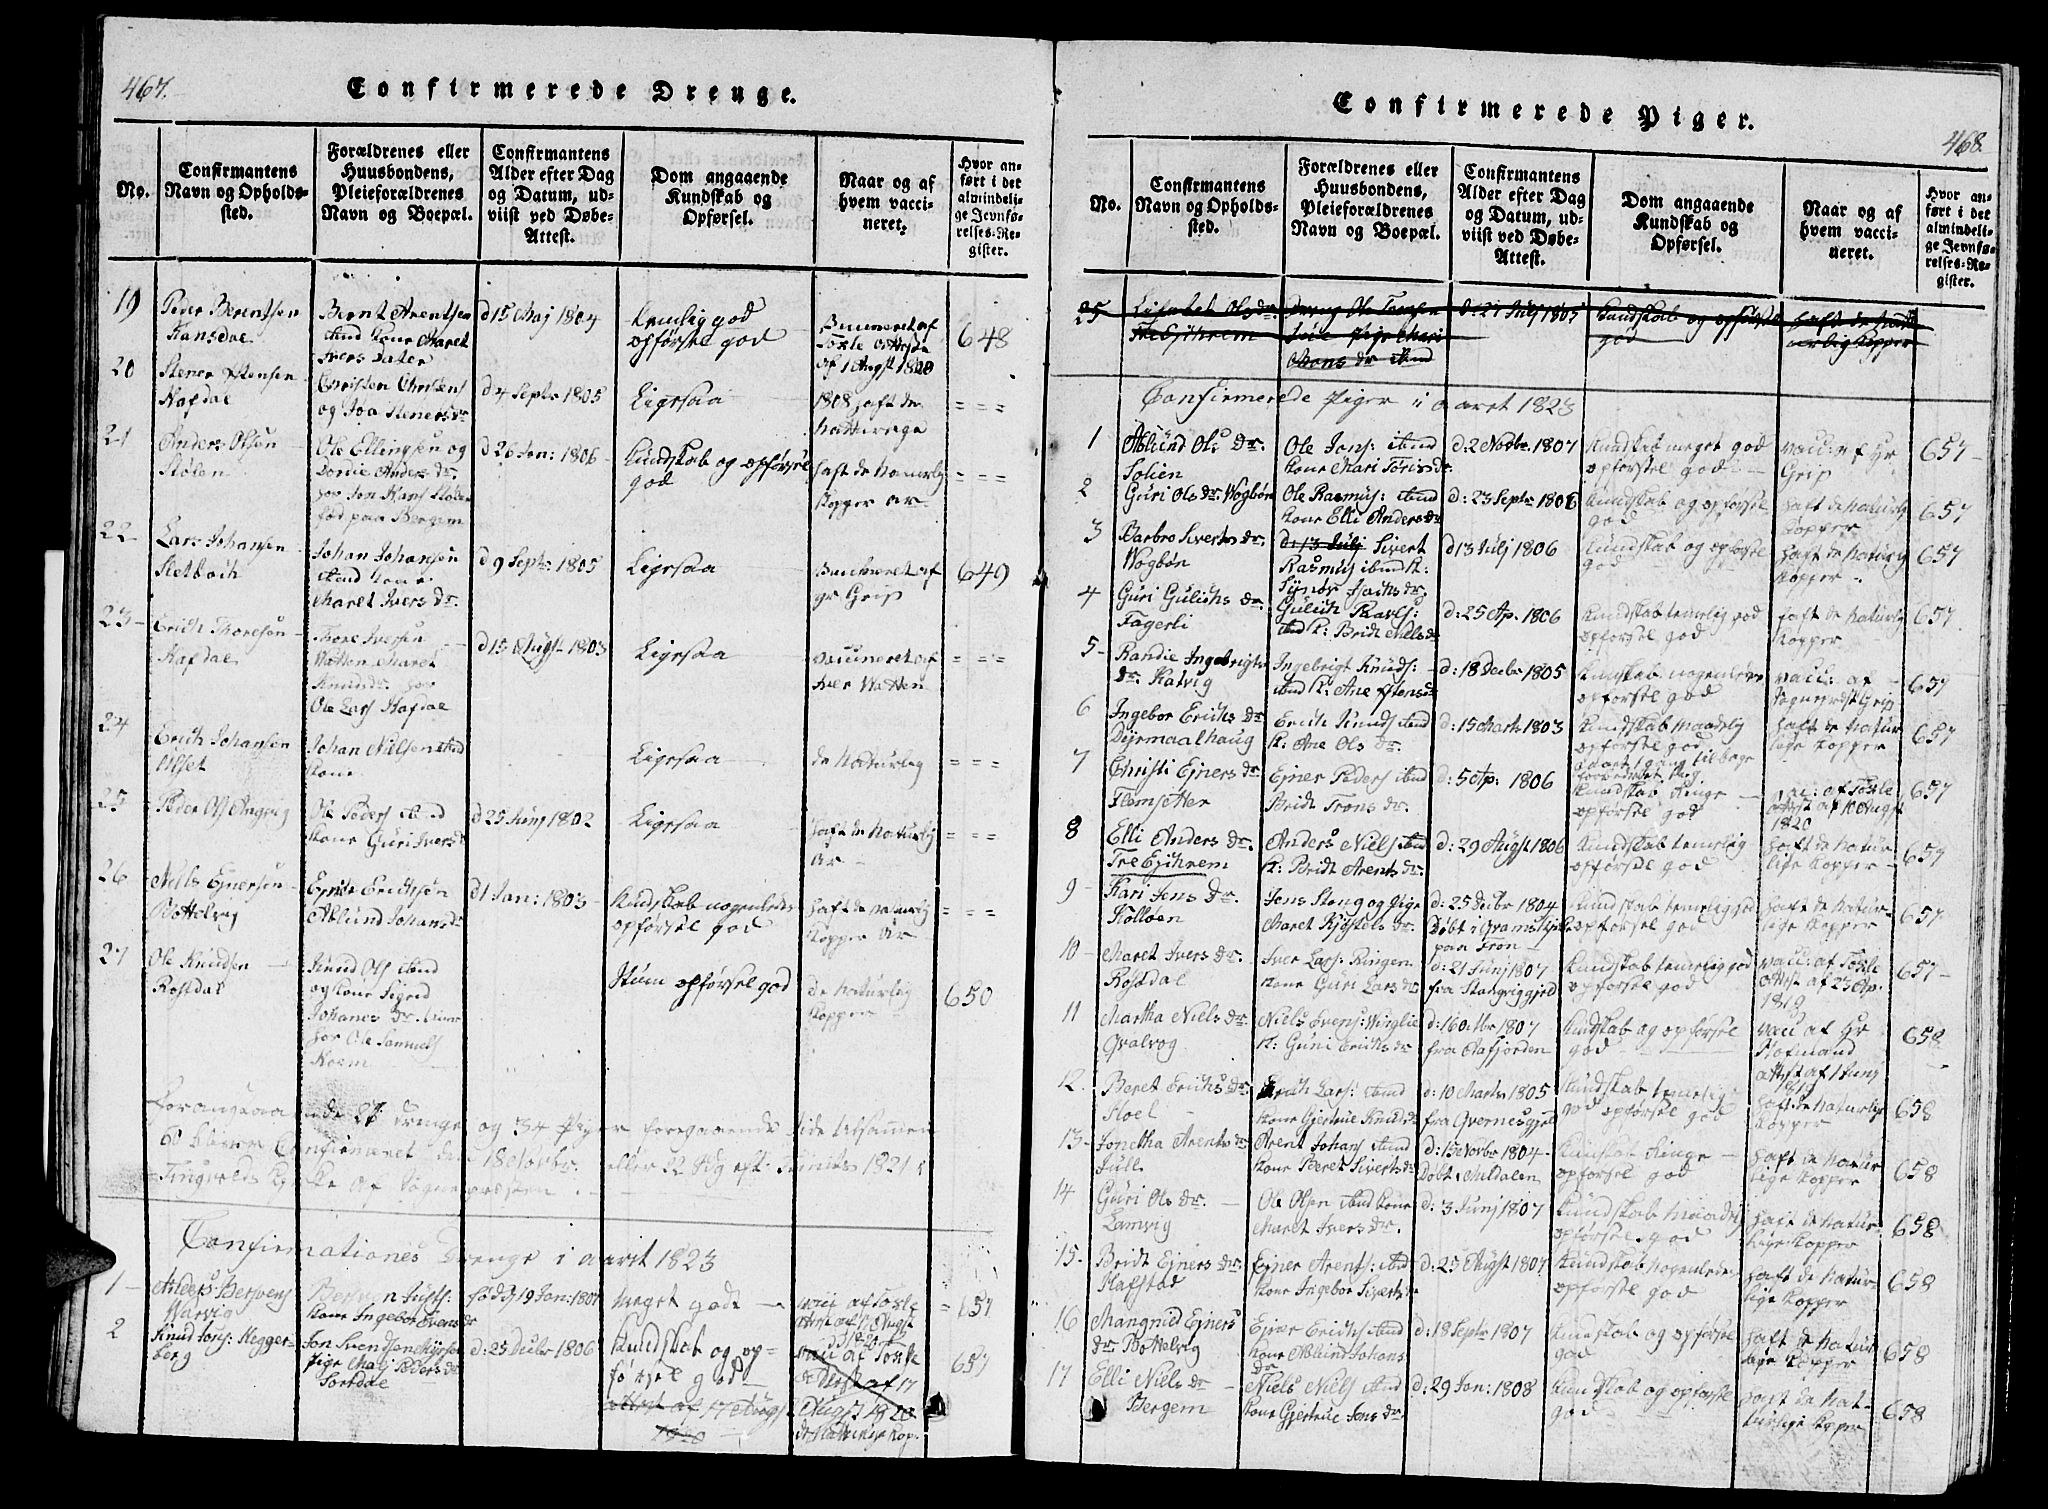 467.
Confirmerede Drenge.
No.
Confirmantens
Navn og Opholds-
sted.
Forældrenes eller
Huusbondens,
Pleieforældrenes
Navn og Boepæl.
Confirmantens
Alder efter Dag
og Datum, ud-
viist ved Døbe-
Attest.
Dom angaaende
Kundskab og
Opførsel.
Naar og af
hvem vacci-
neret.
Hvor an-
ført i det
almindeli-
ge Jevnfø-
relses-Re-
gister.
19
Peder Berentsen
Hansdal
Bernt Arentsen
ibid kone Maret
Ivers dater
d 15 Maj 1804
temlig god
opførsel god
Vaccineret af
Toxle Attest
af 1 Augst 1820
648
20
Stener Estensen
Hafdal
Christen Christens
og Joa Steners dr
d 4 Septr 1805
Ligesaa
1808 haft de
= = =
21
Anders Olsen
Stølen
Ole Ellingsen og
Dordie Anders dr.
hos Jon Hans Stølen
fød paa Bergem
d 26 Jan: 1806
Kundskab og opførsel
god
haft de naturlig
Kopper ar
= = =
22
Lars Johansen
Sletbach
Johan Johansen
ibid kone
Maret Ivers dr.
d 9 Septr 1805
Ligesaa
Vaccineret af
Hr Grip
649
23
Erich Thoresen
Hafdal
Thore Iversen
Watten Maret
Knuds dr. hos
Ole Lars Hafdal
d 15 Augst 1803
Ligesaa
vaccineret af
Iver Watten
= = =
24
Erich Johansen
Ulset
Johan Nilsen ibid
kone
Ligesaa
de Naturlig
= = =
25
Peder Ols Angvig
Ole Peders ibid
kone Guri Ivers d
d 25 Junj 1802
Ligesaa
haft de Naturlig
Ar
= = =
26
Niels Ejnersen
Bottelvig
Ejner Erichsen
Ablund Johans dr
d 1 Jan: 1803
Kundskab nogenledes
opførsel god
haft de naturlig
Kopper Ar
= = =
27
Ole Knudsen
Rosdal
Knud Ols ibid
og kone Sigrid
Johanes dr.
hos Ole Samuels
Noem
Stum opførsel god
de naturlig
Kopper
650
27 Drenge og 34 Piger foregaaende Side tilsammen
60 bleven Confirmeret den 18 Novbr. eller 22 Sdg eft: Trinits 1821 i
Tingvolds Kirke af Sognepræsten
Confirmationes Drenge i aaret 1823
1
Anders Bersvens
Warvig
Bersven Justs:
kone Ingebor Evens dr
fødd 19 Jan: 1807
meget gode
vacc af Toxle
Attst af 17 Augst
1820
657
2
Knud Jons: Hegger-
berg
Jon Svendsen Myrsen
Pige Mari Peders dr
Sordal
d: 25 Decbr 1806
Kundskab og op-
førsel god
attest af 17 Augst
1820
vacc af Toxle
Attest af 17
Augst 1820
de Naturlige Kop.
657
468.
Confirmerede Piger.
No.
Confirmantens
Navn og Opholds-
sted.
Forældrenes eller
Huusbondens,
Pleieforældrenes
Navn og Boepæl.
Confirmantens
Alder efter Dag
og Datum, ud-
viist ved Døbe-
Attest.
Dom angaaende
Kundskab og
Opførsel.
Naar og af
hvem vacci-
neret.
Hvor an-
ført i det
almindeli-
ge Jevnfø-
relses-Re-
gister.
25
Lisabet Ols dr
Tre Ejkrem
Dreng Ole Jensen
Juel Pige Mari
Mons dr ibid
d: 27 Julj 1805
Kundskab og opførsel
god
haft de natu
urlig Kopper
Confirmerede Piger i aaret 1823
1
Ablund Ols dr.
Solien
Ole Jons: ibid
kone Mari Toris dr
d: 2 Novbr 1807
Kundskab meget god
opførsel god
vacc: af Hr
Grip
657
2
Guri Ols dr. Wogbøn
Ole Rasmus: ibid
kone Elli Anders dr
d: 23 Septr 1806
Kundskab og opførsel
god
haft de Naturlig
Kopper
657
3
Barbro Siverts dr.
Wogbøn
d: 13 Julj Sivert
Rasmus ibid K:
Synør Isachs dr.
d 13 Julj 1806
Kundskab og opførsel
god
haft de Naturlig
Kopper
657
4
Guri Gulichs dr.
Fagerli
Gulich Karls:
ibid K: Bridt Niels dr
d: 25 Ap. 1806
Kundskab temelig god
opførsel god
haft de Naturlig
Kopper
657
5
Randie Ingebrigts
dr. Kalvig
Ingebrigt Knuds:
ibid K: Ane Estens dr
d: 18 Decbr 1805
Kundskab nogenledes
opførsel god
vacc: af
Sognepræst Grip
657
6
Ingebor Erichs dr.
Dyrmaalhaug
Erich Knuds ibid
K: Ane Ols dr.
d: 15 Marts 1803
Kundskab maadelig
opførsel god
haft de Natur
lige Kopper
657
7
Christi Ejners dr
Flemsetter
Ejner Peders ibid
Bridt Trons dr.
d: 5 Ap: 1806
Kundskab Ringe
opførsel god
vacc: af Toxle
Attst af 10 Augst
1820
657
8
Elli Anders dr.
Tre Ejkrem
Anders Niels ibid
K: Bridt Arents dr.
d: 29 Augst 1806
Kundskab temelig
opførsel god
haft de Natur
lige Kopper
657
9
Kari Jens dr.
Holloen
Jens Steng og Pige
Maret Kjøstels dr.
d: 25 Decbr 1804
Døbt i Grams Kirke
paa Fron
Kundskab temelig god
opførsel god
haft de Natur-
lige Kopper
657
10
Maret Ivers dr.
Rosdal
Iver Lars: Ringen
kone Guri Lars dr
d: 21 Junj 1807
fra Stangviggjeld
Kundskab temelig god
opførsel god
vacc: af Toxle
Attst af 23 Ap.
1819
657
11
Martha Niels dr.
Qvalvog
Niels Evens: Winglie
K: Guni Erichs dr
d: 16 Octbr 1807
fra Aafjorden
Kundskab og opførsel
god
vacc af Hr
Hofmand
attst af 1 Junj
1819
658
12.
Beret Erichs dr
Hoel
Erich Lars: ibid
kone Gjertrue Knuds dr
d: 10 Marts 1805
fra Qvernesgjeld
Kundskab temelig
god opførsel god
haft de Naturlig
Kopper
658
13
Jonetha Arents dr
Jull
Arent Johans ibid
kone Beret Siverts dr
d: 15 Novbr 1804
Døbt i Meldalen
Kundskab Ringe
opførsel god
haft de Natur
lige Kopper
658
14
Guri Ols dr.
Lamvig
Ole Olsen ibid kone
Maret Ivers dr.
d: 3 Junj 1807
Kundskab Maadelig
opførsel god
haft de Natur-
lige Kopper
658
15.
Bridt Ejners dr.
Hafstad
Ejner Arents: ibid
kone Ingebor Siverts dr
d: 25 Augst 1807
Kundskab Nogenledes
opførsel god
haft de Natur-
lige Kopper
658
16
Mangnild Ejners
dr. Bottelvig
Ejner Erichs ibid
kone Ablund Johans
dr
d: 18 Septr 1807
Kundskab og opførsel
god
haft de Natur
lige Kopper
658
17
Elli Niels dr
Bergem
Niels Niels ibid
kone Gjertrue Jons dr.
d: 29 Jan: 1808
Kundskab og opførsel
god
haft de Nat-
urlige Kopper
658